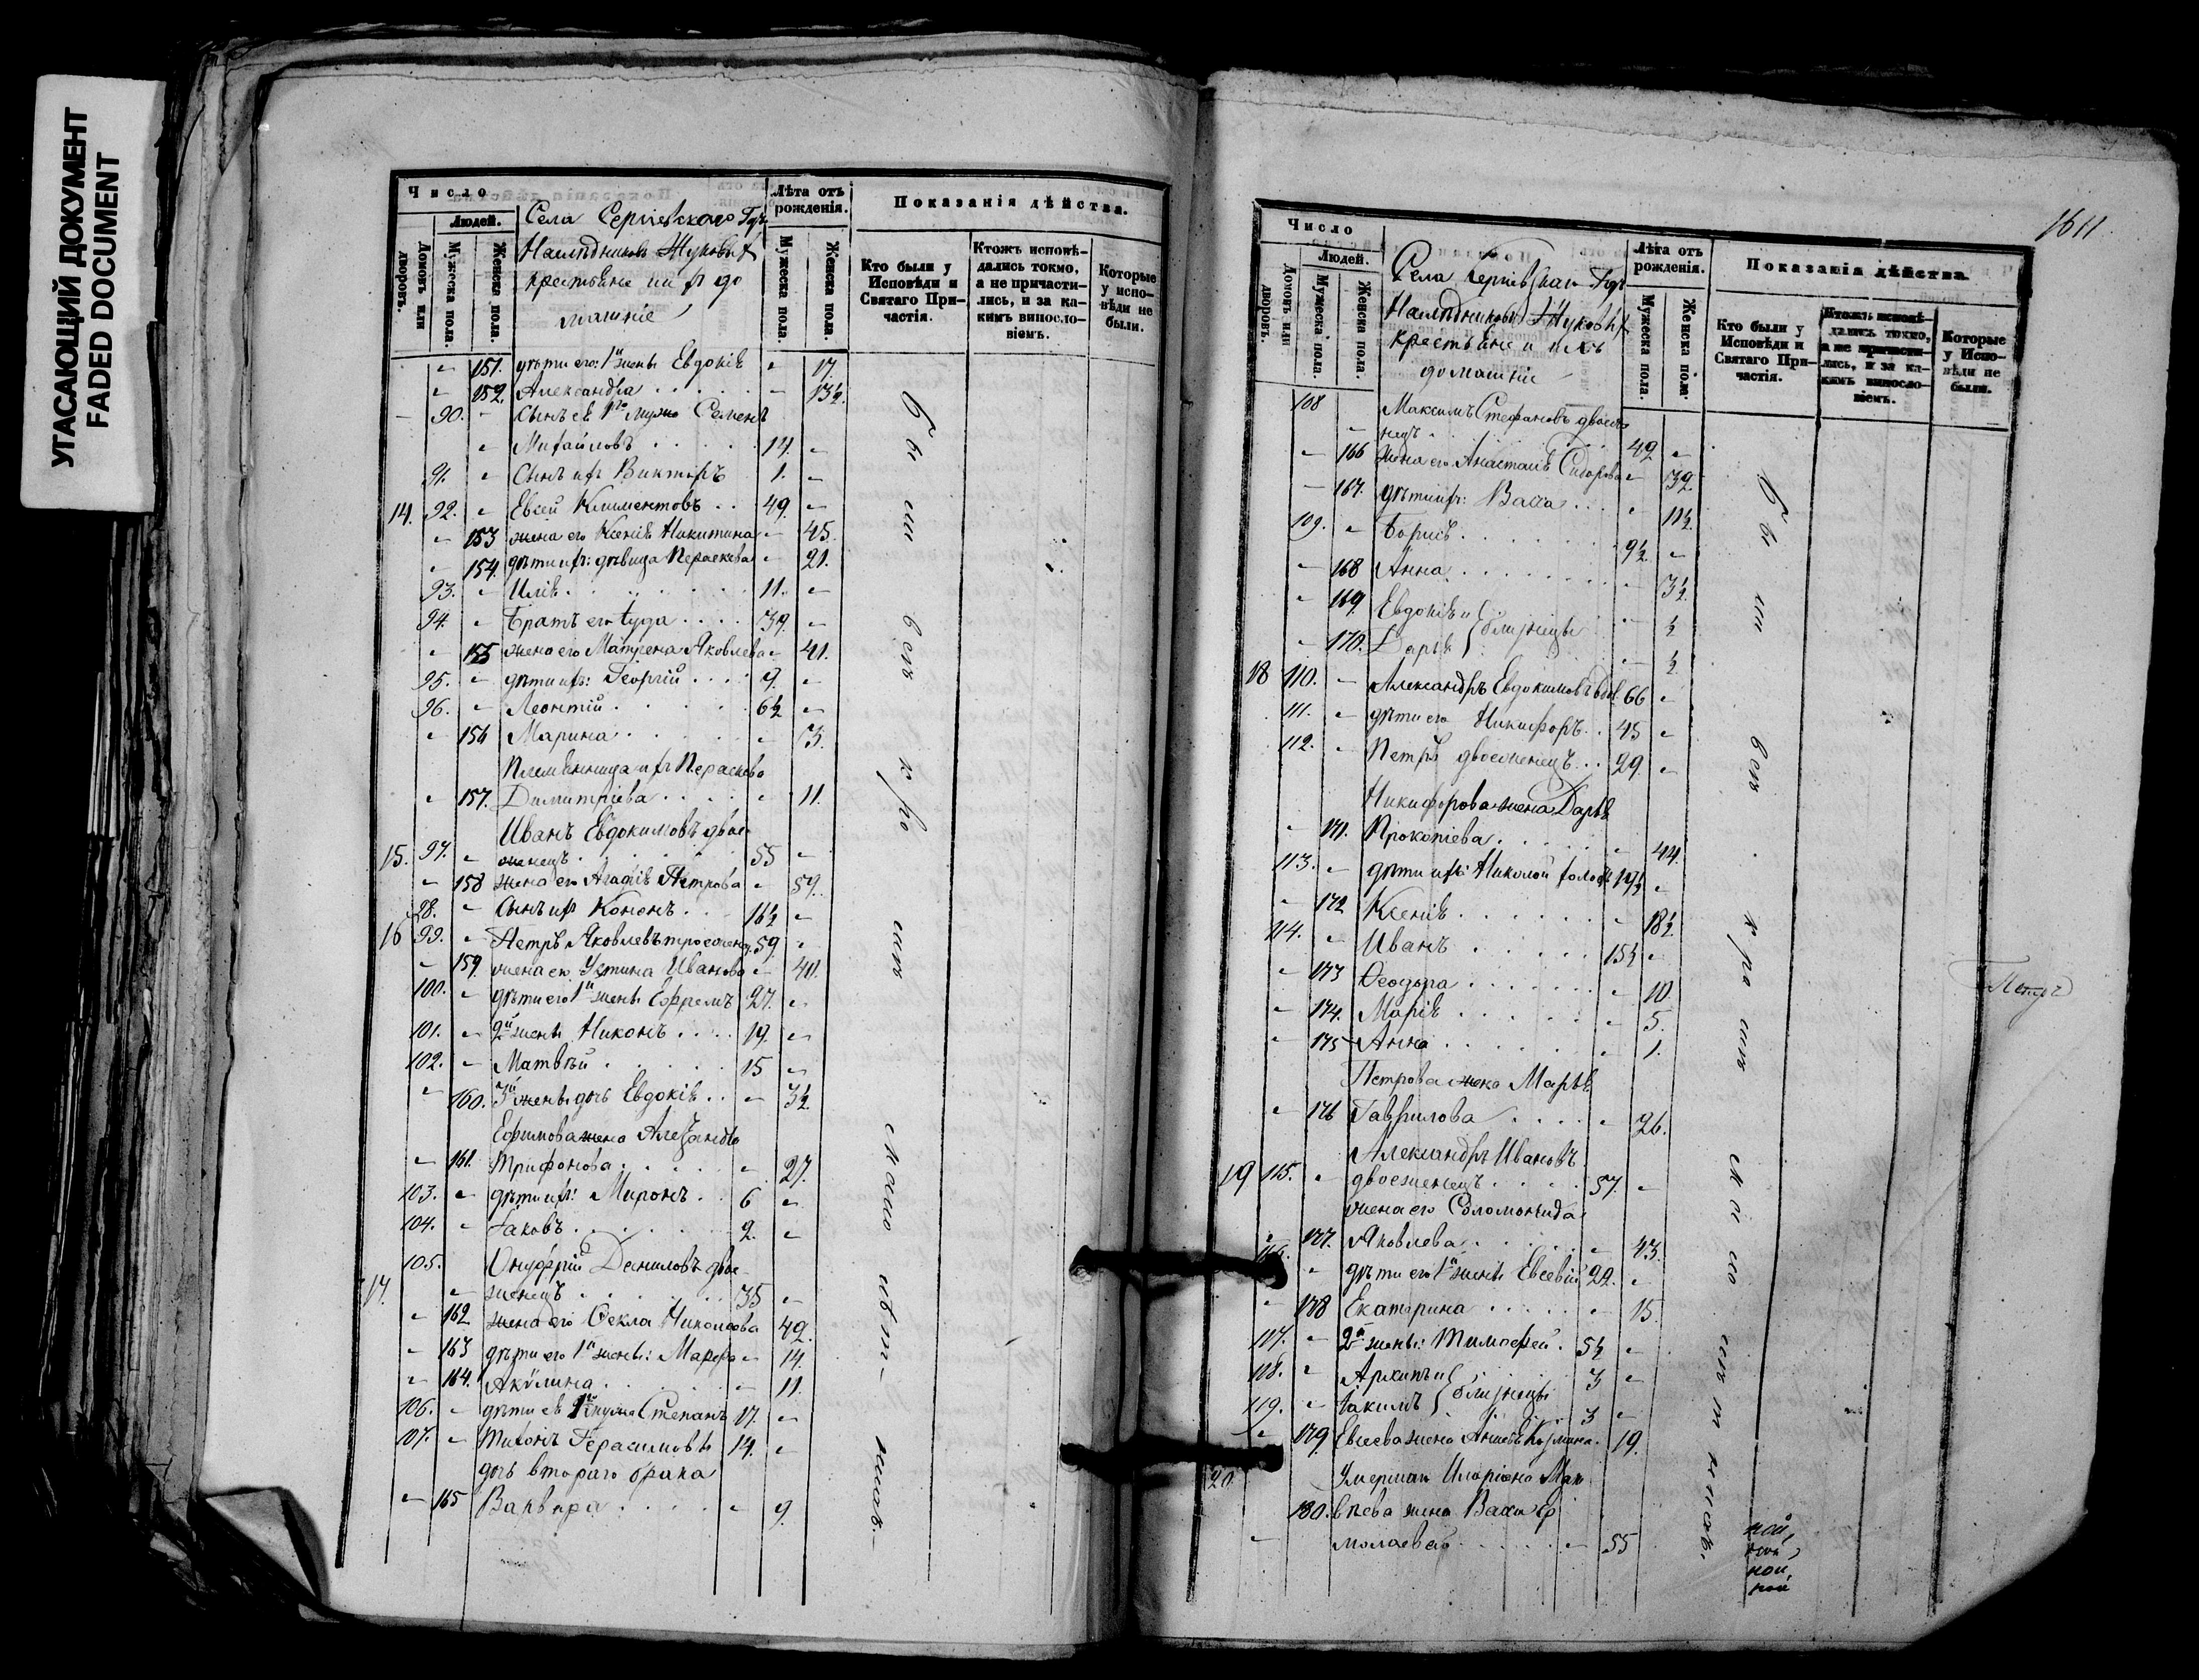 УГАСАЮЩИЙ ДОКУМЕНТ
FADED DOCUMENT
Число
Людей.
Домовъ или дворовъ.
Мужеска пола.
Женска пола.
Села Сергіевскаго
Наслѣдниковъ Жуковыхъ
крестьяне и ихъ до
машніе
Лѣта отъ рожденія.
Мужеска пола.
Женска пола.
Показанія дѣйства.
Кто были у Исповѣди и Святаго При-частія.
Ктожъ исповѣ-дались токмо, а не причасти-лись, и за ка-кимъ винослo-віемъ.
Которые у испо-вѣди не были.
151. дѣти его: 1й жены Евдокія 17.
152. Александра 13½
90. Сынъ ея 1го мужа Семенъ
Михайловъ 14.
91. Сынъ ихъ Викторъ 1.
14. 92. Евсей Климентовъ 49.
153 жена его Ксенія Никитина 45.
154. дѣти ихъ: дѣвица Параскева 21.
93. Илія 11.
94. Братъ его Іуда 39.
155 жена его Матрена Яковлева 41.
95. дѣти ихъ: Георгій 9.
96. Леонтій 6½
156 Марина 3.
Племянница ихъ Параскева
157. Димитріева 11.
Иванъ Евдокимовъ двое-
15. 97. женецъ 55
158 жена его Агафія Петрова 59.
98. Сынъ ихъ Кононъ 16½
16 99. Петръ Яковлевъ троеженец. 59.
159. жена его Устина Иванова 40.
100. дѣти его 1й жены Ефремъ 27.
101. 2й жены Никонъ 19.
102. Матвѣй 15
160. 3й жены дочь Евдокія 3½
Ефимова жена Александра
161. Трифонова 27.
103. дѣти ихъ: Миронъ 6
104. Іаковъ 2.
105. Онуфрій Даниловъ двое-
17. женецъ 35
162 жена его Ѳекла 42.
163 дѣти его 1й жены: Марфа 14.
164. Акулина 11.
106. дѣти ея 1го мужа Степанъ 17.
107. Тихонъ Герасимовы 14.
дочь втораго брака
165 Варвара 9.
Были всѣ
1611
Число
Людей.
Домовъ или дворовъ.
Мужеска пола.
Женска пола.
Села
Наслѣдниковъ Жуковыхъ
крестьяне и ихъ
домашніе
Лѣта отъ рожденія.
Мужеска пола.
Женска пола.
Показанія дѣйства.
Кто были у Исповѣди и Святаго При-частія.
Ктожъ исповѣ-дались токмо, а не причасти-лись, и за ка-кимъ винослo-віемъ.
Которые у Испо-вѣди не были.
108 Максимъ Стефановъ двоеже
нецъ 42
166 жена его Анастасія Сидорова 32
167. дѣти ихъ: Васса 11½
109. Борисъ 9½
168 Анна 3½
169. Евдокія и близнецы ½
170. Дарья ½
18 110. Александръ Евдокимовъ вдов. 66
111. дѣти его Никифоръ 45
112. Петръ двоеженецъ 29.
Никифорова жена Дарья
171. Прокопіева 44.
113. дѣти ихъ: Николай холост. 19½
172 Ксенія 18½
114. Иванъ 15½
173 Ѳеодора 10
174. Марія 5.
175 Анна 1.
Петрова жена Марья
176 Гаврилова 26.
Александръ Ивановъ
19 115. двоеженецъ 57.
жена его Соломонида
177. Яковлева 43.
дѣти его 1й жены Евсевій 22.
178 Екатерина 15.
2й жены: Тимофей 5½
Архипъ и близнецы 3
119. Іакимъ 3
179. Евсеева жена 19.
20
180. жена Васса Ер
молаева 55
Были всѣ
Петръ